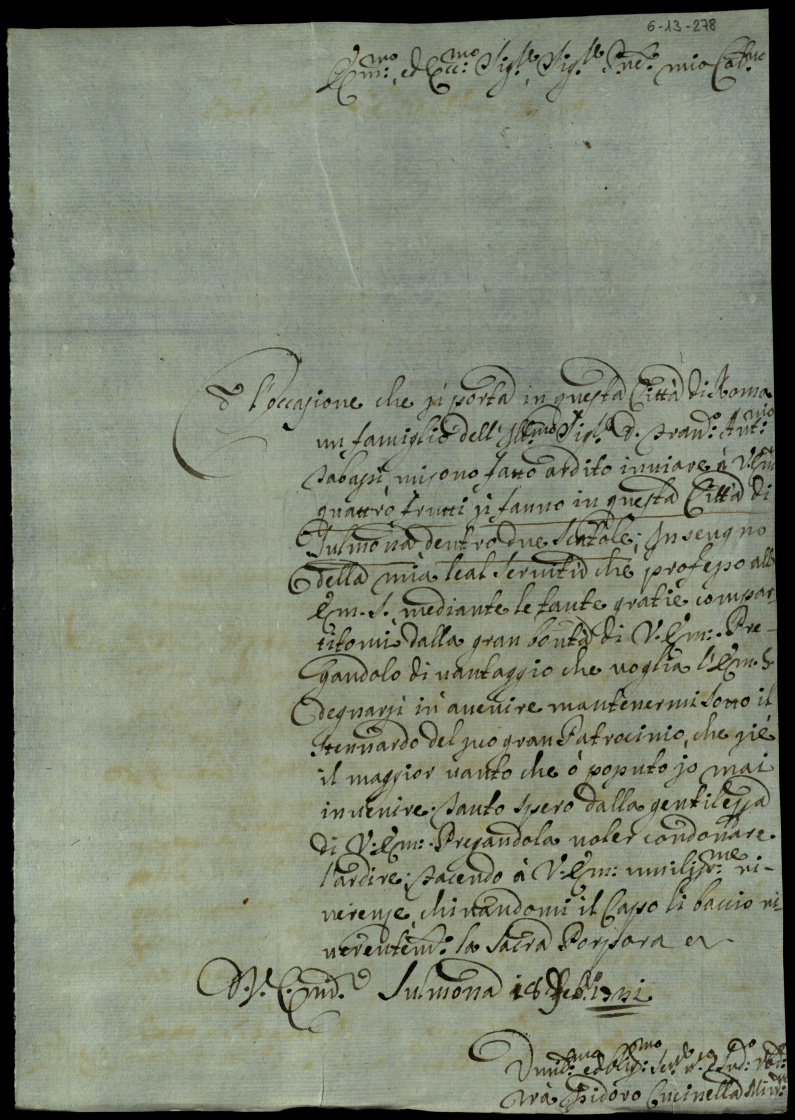 6-13-278
Em:mo, ed Ecc:mo Sig:re Sig:re P:ne mio Col:mo
l'occasione che si porta in questa Città di Roma
un famiglio dell' Ill:mo Sig:r D. Fran:co Ant:nio
mi sono fatto ardito inviare à V. Em:
quattro frutti si fanno in questa Città di
Sulmona dentro due Scatole; In segno
della mia leal servitù che professo all'
Em. S. mediante le tante gratie compar
titomi dalla gran bontà di V. Em:. Pre-
gandolo di vantaggio che voglia l'Em. S.
degnarsi in avenire mantenermi sotto il
stennardo del suo gran Patrocinio, che si è
il maggior vanto che ò possuto io mai
invenire; Tanto spero dalla gentilezza
di V: Em:. Pregandola voler condonare
l'ardire; facendo à V. Em: umiliss:me ri-
verenze, chinandomi il Capo li baccio ri
verentem:e la Sacra Porpora
D. V. Em:. Sulmona 18 Feb:ro
Umil:mo ed obblig:mo Ser:re
frà Isidoro Cucinella Min: